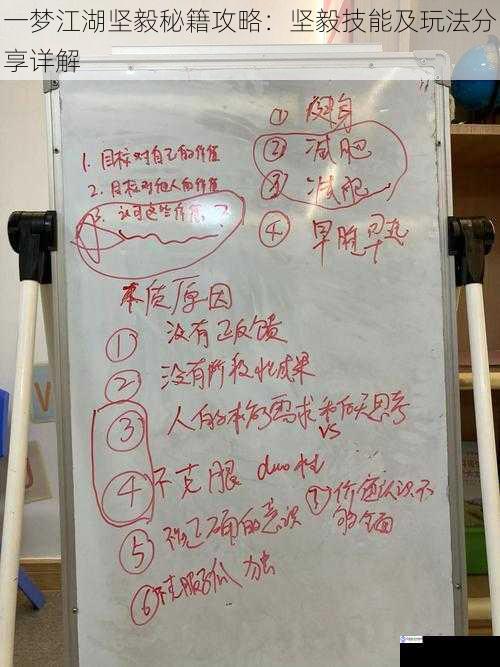 一梦江湖坚毅秘籍攻略：坚毅技能及玩法分
享详解
1. 目标对自己的价值
2. 目标对他人的价值
3. 认可这些价值？
① 健身
② 减肥
③ 减肥
④ 早睡早起
本质原因
① 没有正反馈
② 没有阶段性成果
③ 人的本能需求 vs
④ 不克服 duo性
⑤ 不正确的意识
⑥ 不克服 方法
⑦ 价值认识不
够全面